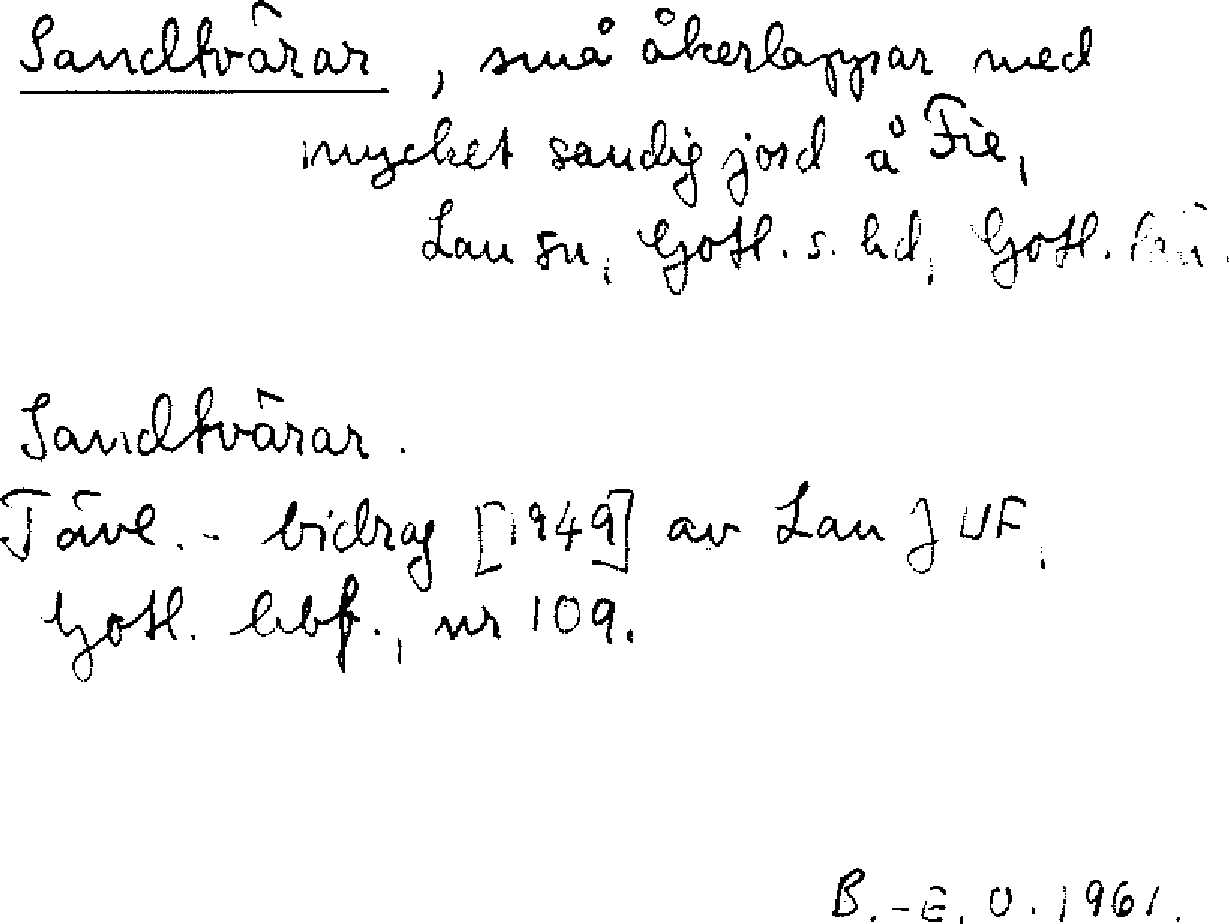 Sandtvärar, små åkerlappar med
mycket sandig jord å Fie,
Lau sn, Gotl. s. hd, Gotl. län.
Sandtvärar.
Tävl.-bidrag [1949] av Lau JUF,
Gotl. bbf., nr 109.
B.-E. O. 1961.